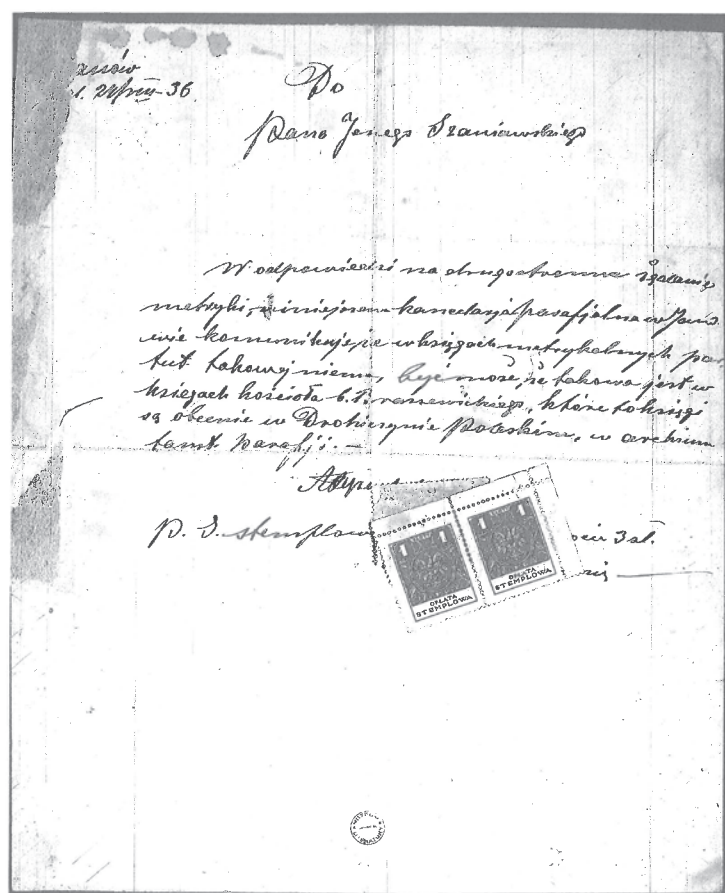 anów
d. 21/VIII-36
Do
Pana Jerzego Szaniawskiego
W odpowiedzi na drugostronne żądanie
metryki, niniejszem kancelarja parafjalna w Jano
wie komunikuje że w księgach metrykalnych par.
tut. takowej niema, być może, że takowa jest w
księgach kościoła b. t., które to księgi
są obecnie w Drohiczynie Poleskim, w archiwum
tamt. parafji. —
P. S. stemplow 3 zł.
1 1
OPŁATA STEMPLOWA
OPŁATA STEMPLOWA
MUZEUM LITERATURY